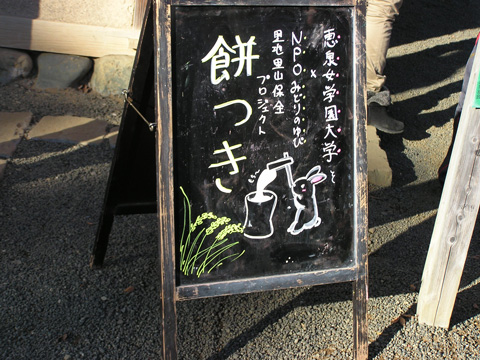 恵泉女学園大学と
×
NPOみどりのゆび
里地里山保全
プロジェクト
餅つき